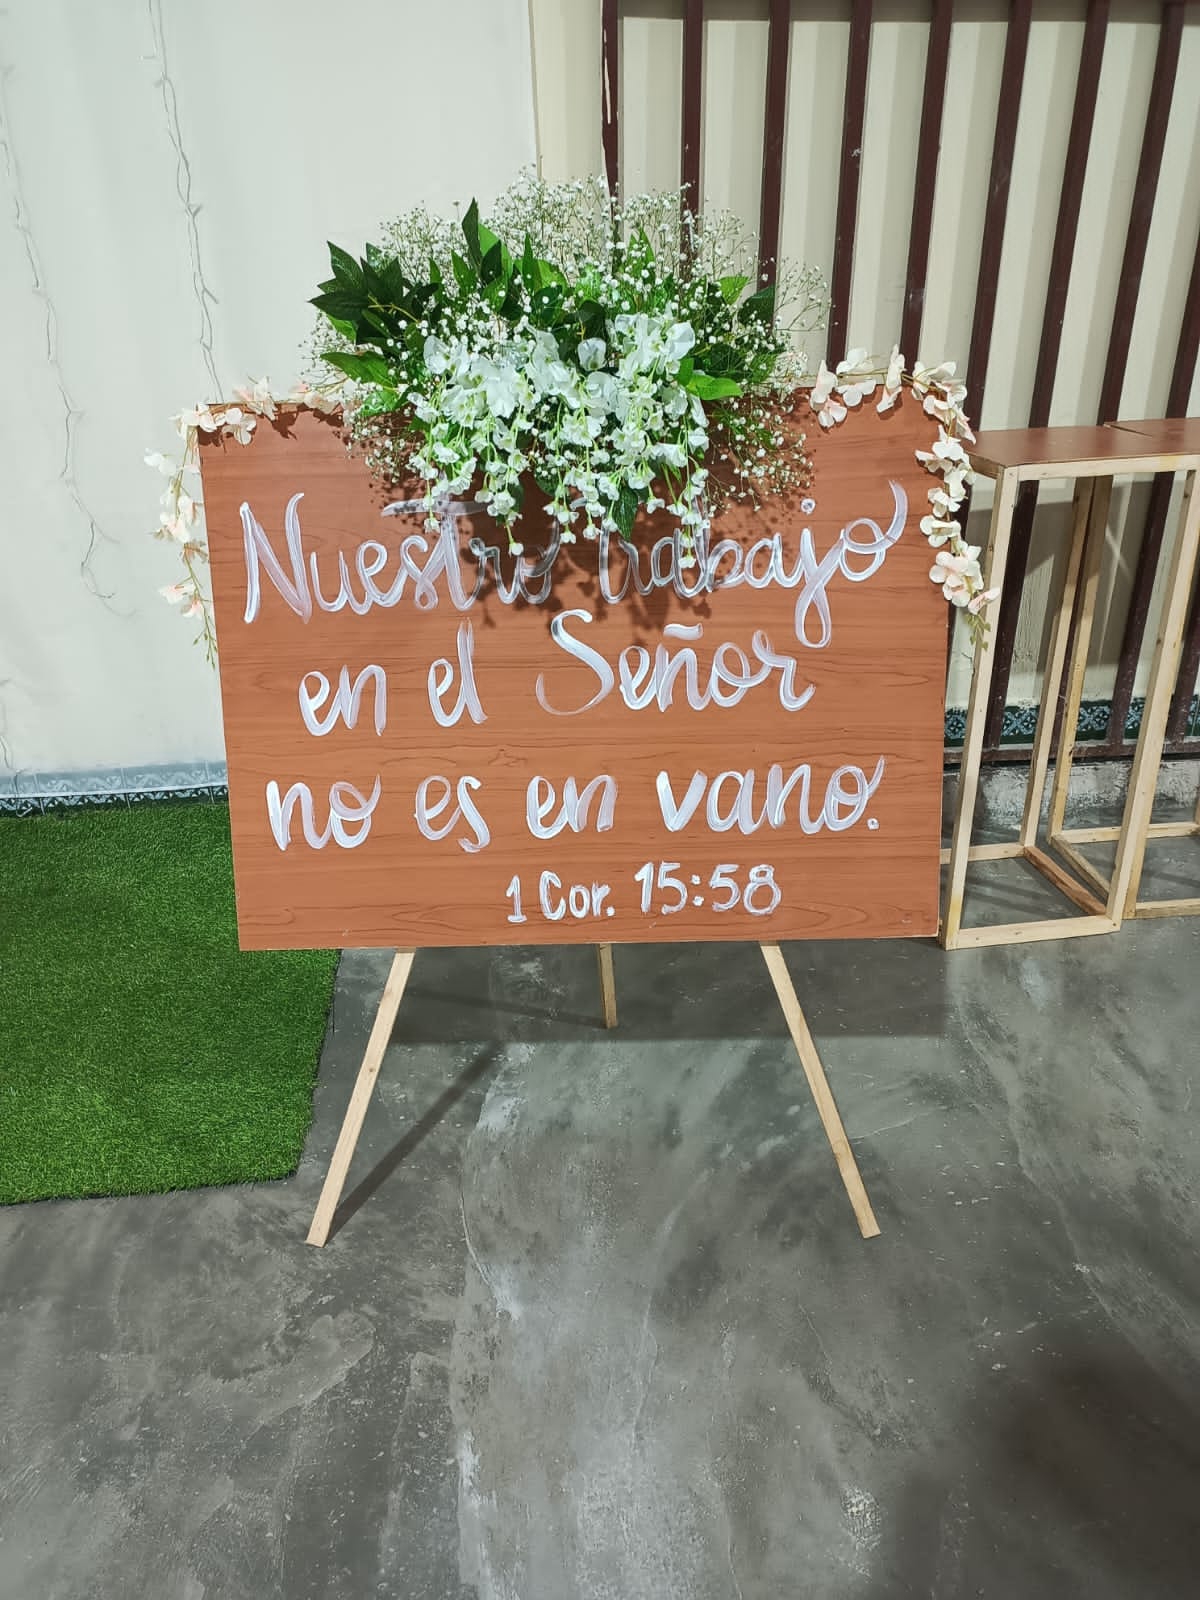 Nuestro trabajo
en el Señor
no es en vano.
1 Cor. 15:58